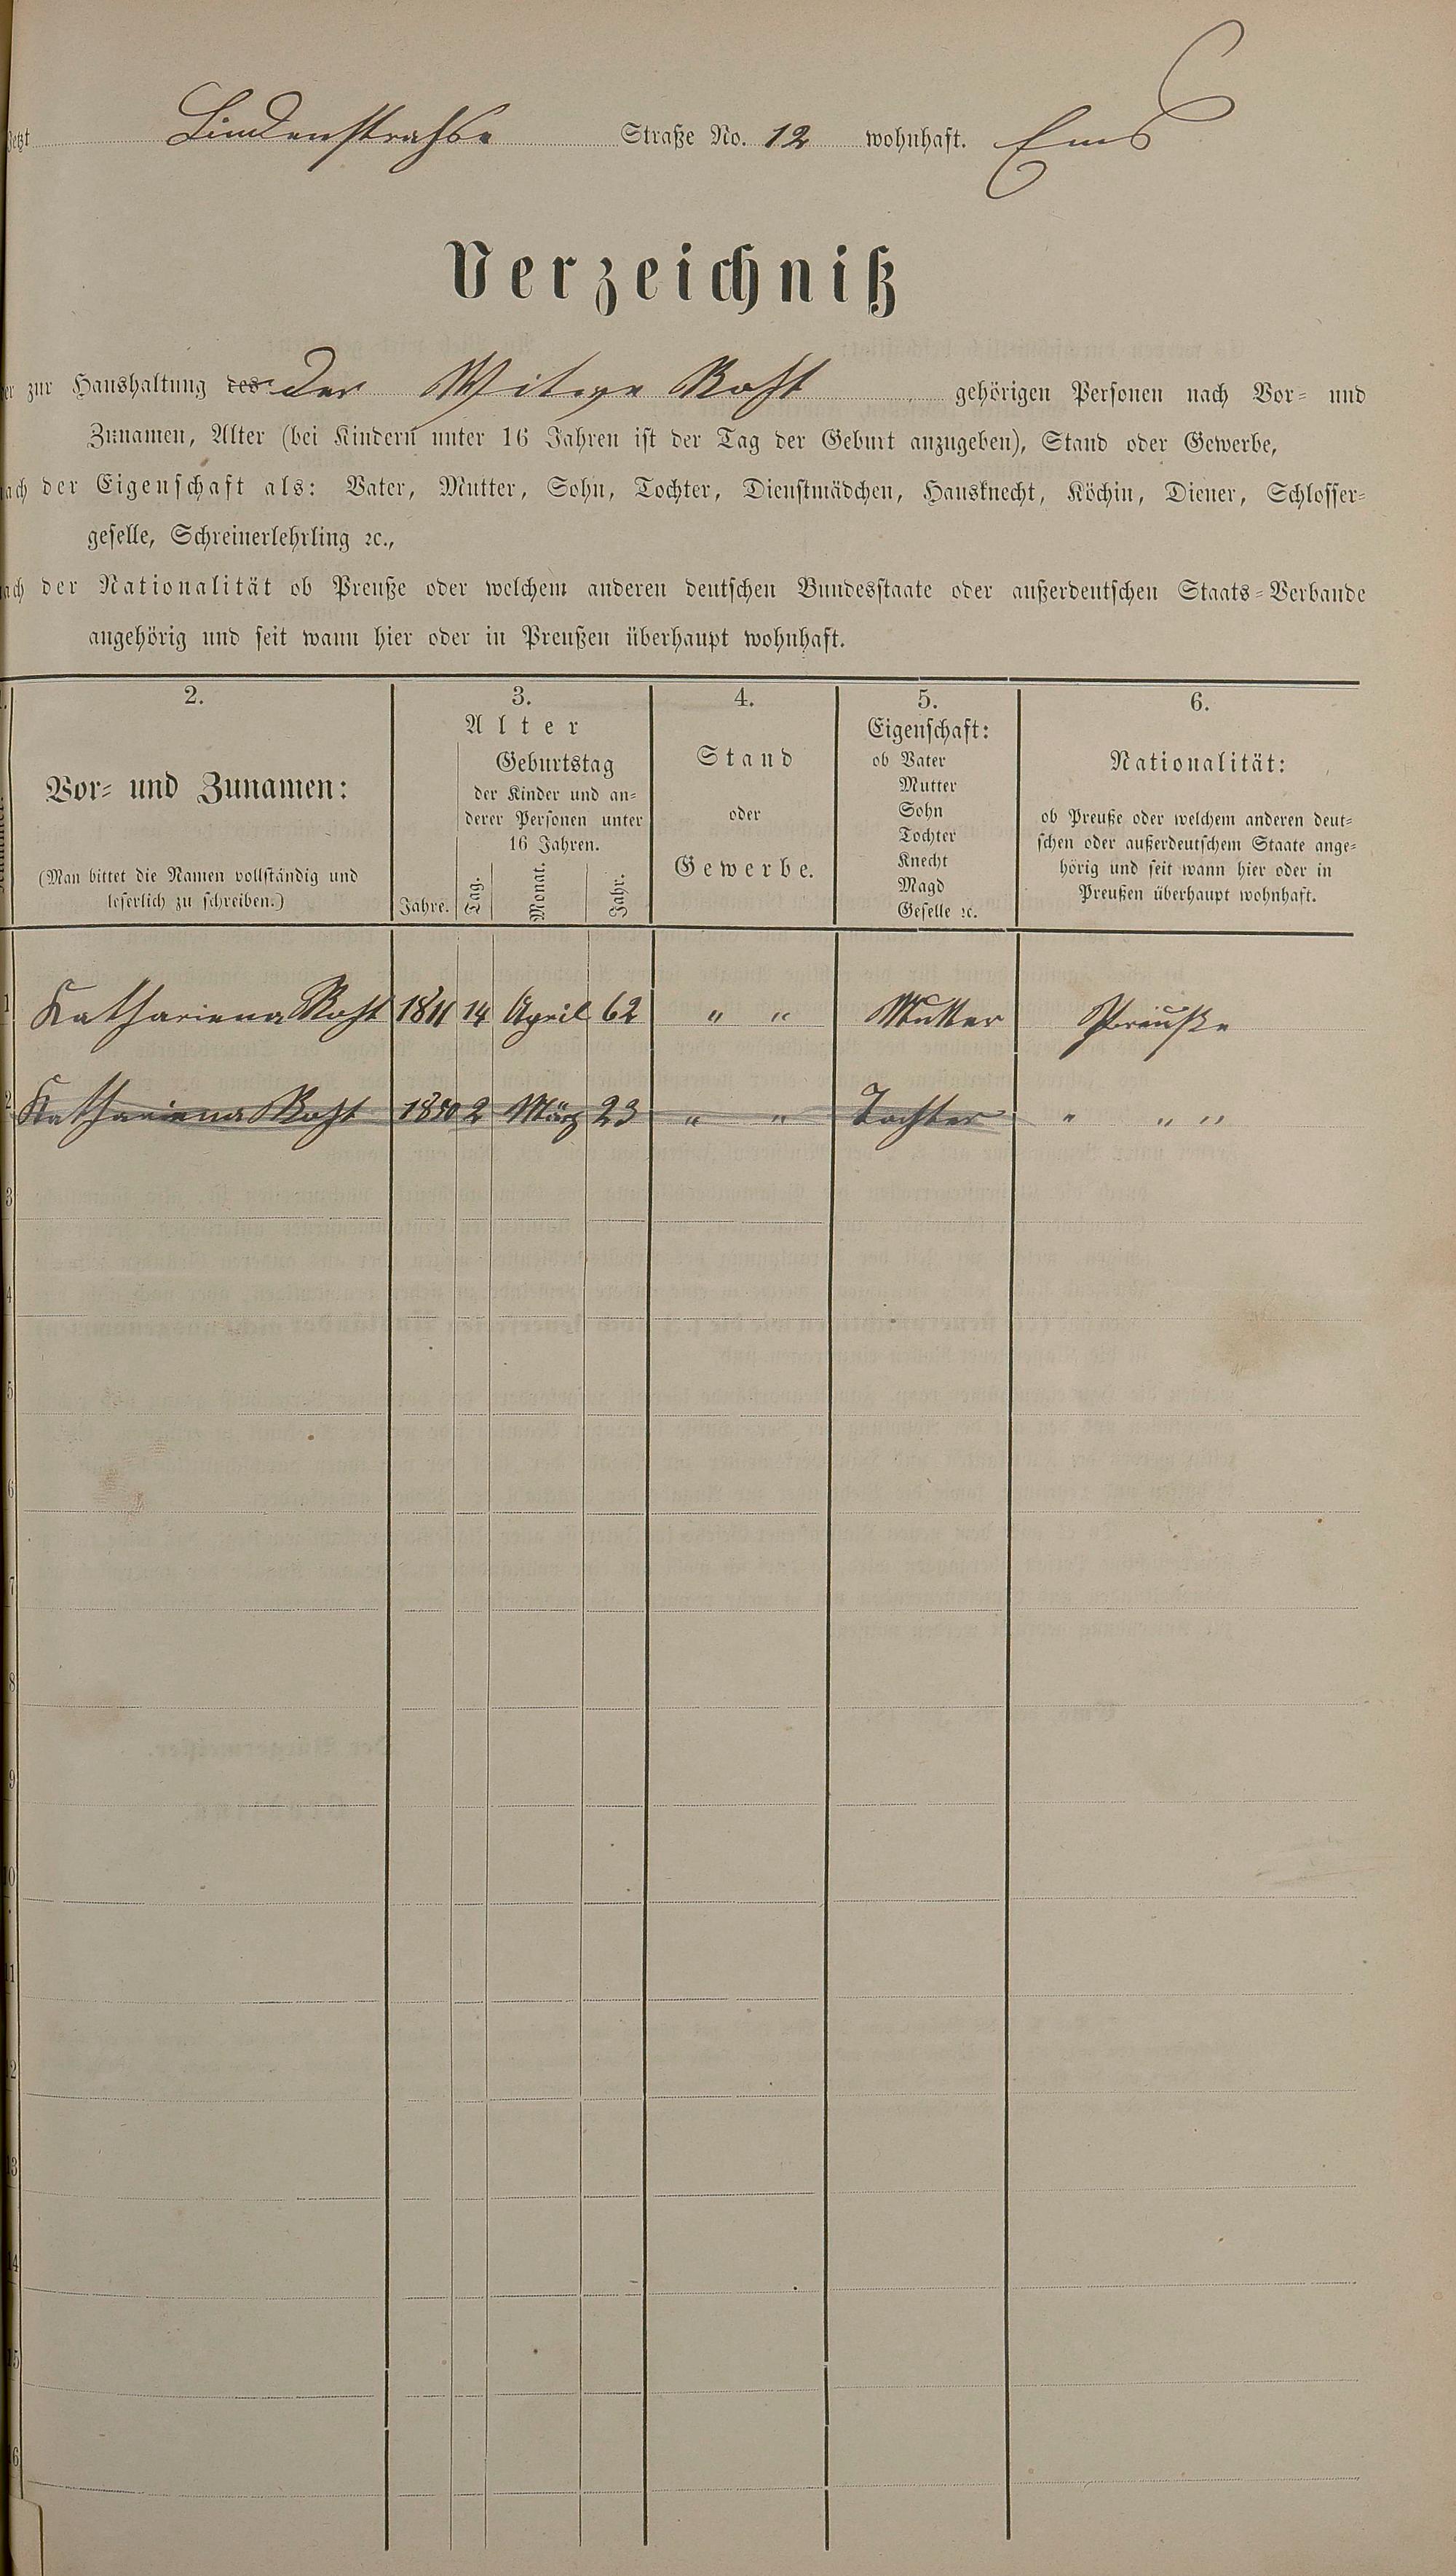 jetzt Lindenstrahse Straße No. 12 wohnhaft. Ems
Verzeichniß
zur Haushaltung des der Witwe Rost gehörigen Personen nach Vor- und
Zunamen, Alter (bei Kindern unter 16 Jahren ist der Tag der Geburt anzugeben), Stand oder Gewerbe,
nach der Eigenschaft als: Vater, Mutter, Sohn, Tochter, Dienstmädchen, Hausknecht, Köchin, Diener, Schlosser-
geselle, Schreinerlehrling ꝛc.,
nach der Nationalität ob Preuße oder welchem anderen deutschen Bundesstaate oder außerdeutschen Staats-Verbande
angehörig und seit wann hier oder in Preußen überhaupt wohnhaft.
2.
Vor- und Zunamen:
(Man bittet die Namen vollständig und
leserlich zu schreiben.)
3.
Alter
Geburtstag
der Kinder und an-
derer Personen unter
16 Jahren.
Jahre. Tag. Monat. Jahr.
4.
Stand
oder
Gewerbe.
5.
Eigenschaft:
ob Vater
Mutter
Sohn
Tochter
Knecht
Magd
Geselle ꝛc.
6.
Nationalität:
ob Preuße oder welchem anderen deut-
schen oder außerdeutschem Staate ange-
hörig und seit wann hier oder in
Preußen überhaupt wohnhaft.
1 Kathariena Rost 1811 14 April 62 " " Mutter Preuße
2 Kathariena Rost 1850 2 März 23 " " Tochter " " "
3
4
5
6
7
8
9
10
11
12
13
14
15
16